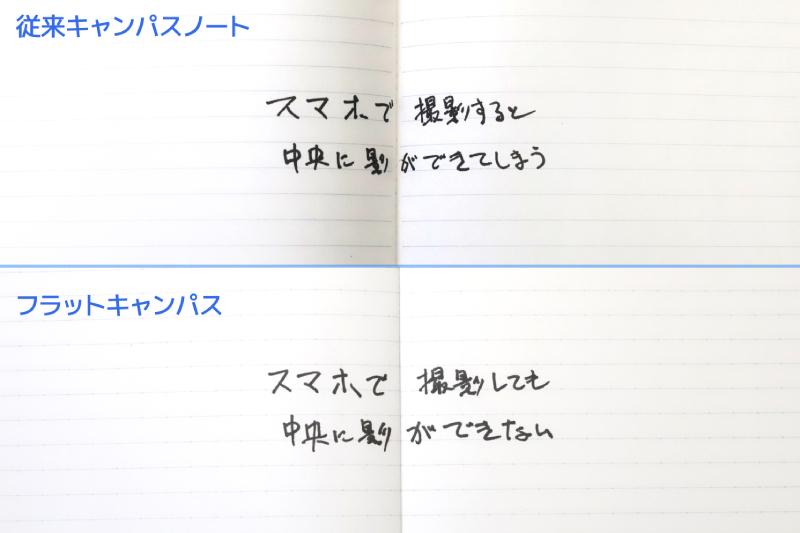 従来キャンパスノート
スマホで 撮影すると
中央に影ができてしまう
フラットキャンパス
スマホで 撮影しても
中央に影ができない